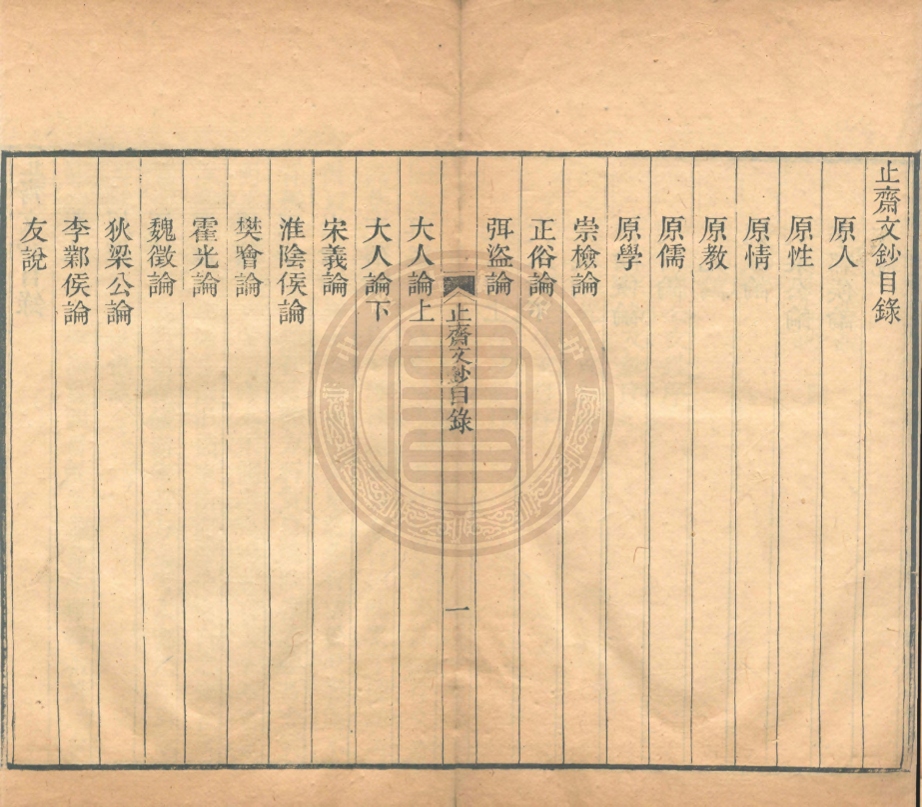 止齋文鈔目錄
原人
原性
原情
原教
原儒
原學
崇檢論
正俗論
弭盜論
止齋文鈔目錄
一
大人論上
大人論下
宋義論
淮陰侯論
樊噲論
霍光論
魏徵論
狄梁公論
李鄴侯論
友說